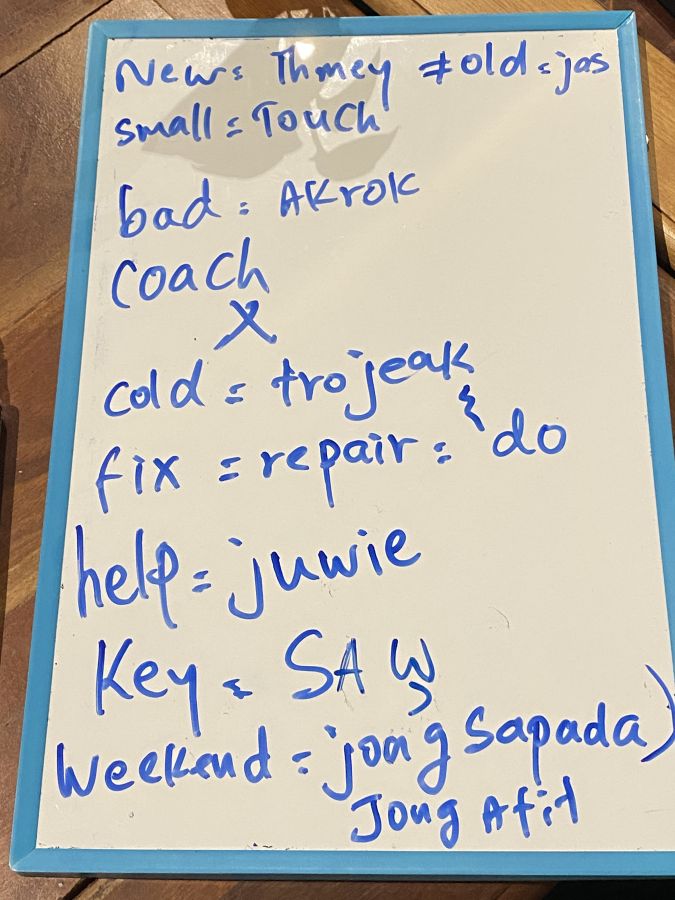 New = Thmey ≠ old = jas
small = Touch
bad = AKrok
coach
X
cold = trojeak
fix = repair = do
help = juwie
Key = SAW
weekend = jong sapada)
Jong Afit